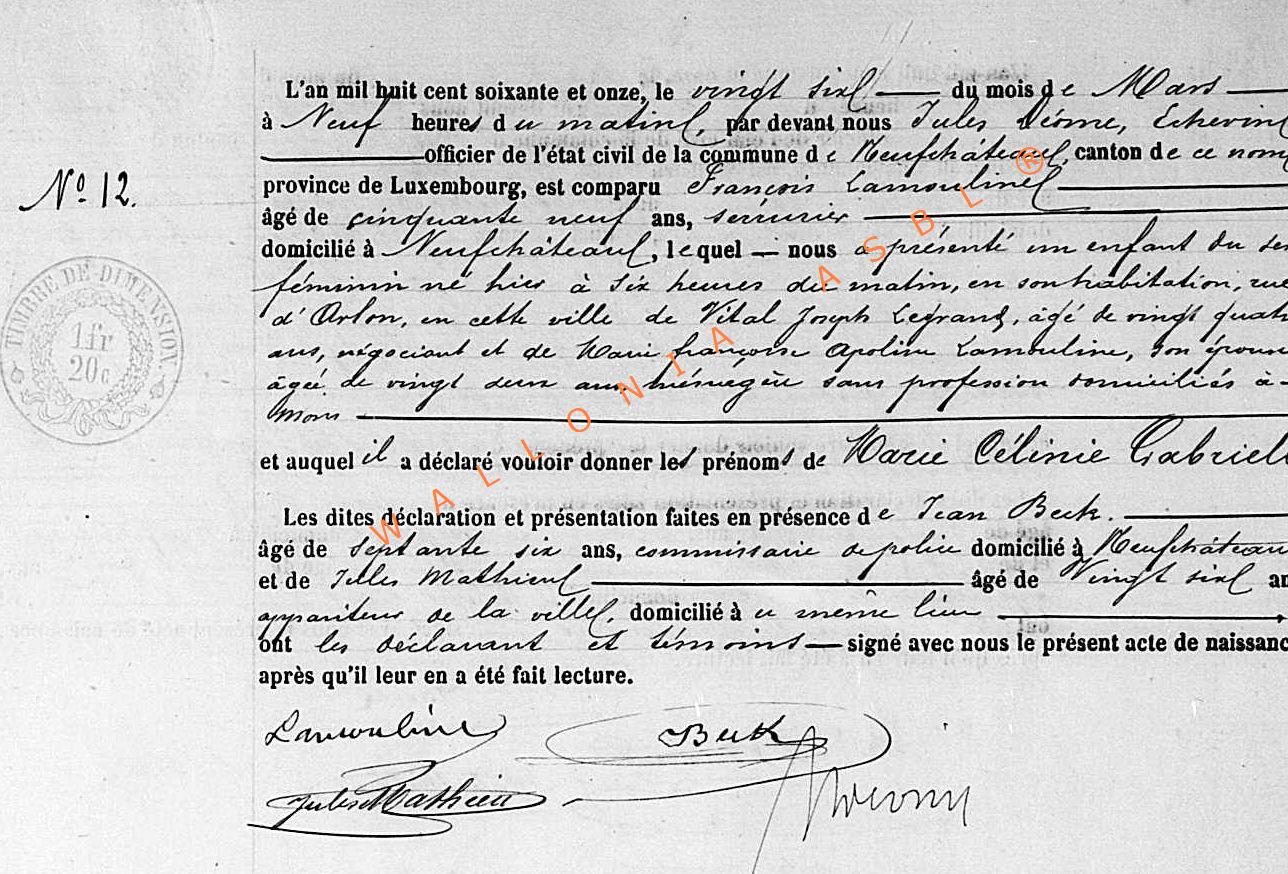 L'an mil huit cent soixante et onze, le vingt six du mois de Mars
à Neuf heures du matin, par devant nous Jules Déome, Echevin
officier de l'état civil de la commune de Neufchâteau, canton de ce nom
province de Luxembourg, est comparu François Lamouline
N° 12.
âgé de cinquante neuf ans, serrurier
domicilié à Neufchâteau, lequel nous a présenté un enfant du se
féminin né hier à six heures du matin, en son habitation, rue
d'Arlon, en cette ville de Vital Joseph Legrand, âgé de vingt quat
ans, négociant et de Marie françoise Apoline Lamouline, son épous
âgée de vingt deux ans, ménagère sans profession domiciliés à
Mons
et auquel il a déclaré vouloir donner les prénoms de Marie Célinie Gabriell
Les dites déclaration et présentation faites en présence de Jean Beck.
âgé de septante six ans, commissaire de police domicilié à Neufchâteau
et de Jules Mathieu âgé de Vingt six an
appariteur de la ville, domicilié à u même lieu
ont les déclarant et témoins signé avec nous le présent acte de naissanc
après qu'il leur en a été fait lecture.
Lamouline Beck
Jules Mathieu
TIMBRE DE DIMENSION.
1 fr
20c
WALLONIA ASBL ®